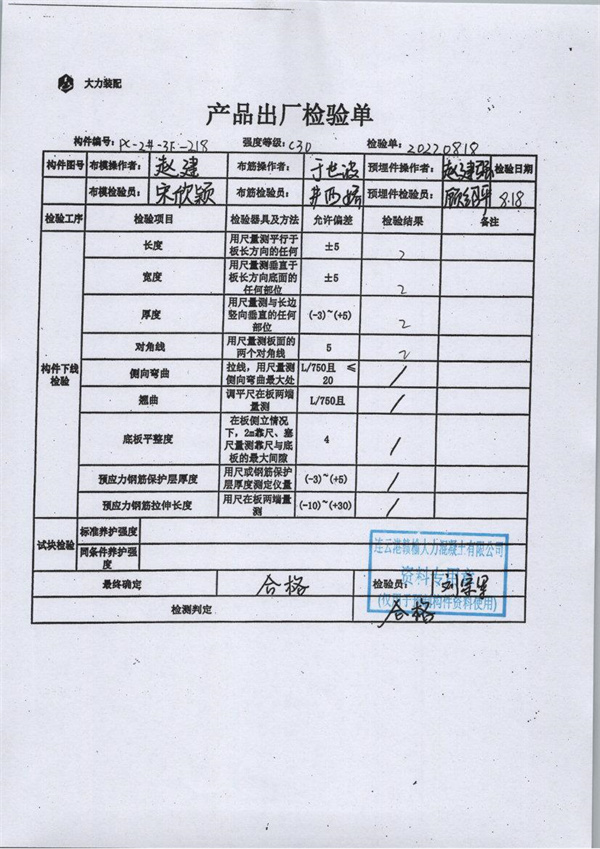 大力装配
产品出厂检验单
构件编号: PC-2#-3F-218 强度等级: C30 检验单: 20220818
构件图号 布模操作者: 赵建 布筋操作者: 于世波 预埋件操作者: 赵建强 检验日期
布模检验员: 宋欣颖 布筋检验员: 预埋件检验员: 8.18
检验工序 检验项目 检验器具及方法 允许偏差 检验结果 备注
构件下线检验
长度 用尺量测平行于板长方向的任何 ±5 2
宽度 用尺量测垂直于板长方向底面的任何部位 ±5 2
厚度 用尺量测与长边竖向垂直的任何部位 (-3)~(+5) 2
对角线 用尺量测板面的两个对角线 5 2
侧向弯曲 拉线，用尺量测侧向弯曲最大处 L/750且 ≤20 /
翘曲 调平尺在板两端量测 L/750且 /
底板平整度 在板侧立情况下，2m靠尺、塞尺量测靠尺与底板的最大间隙 4 /
预应力钢筋保护层厚度 用尺或钢筋保护层厚度测定仪量 (-3)~(+5) /
预应力钢筋拉伸长度 用尺在板两端量测 (-10)~(+30) /
试块检验 标准养护强度
同条件养护强度
连云港赣榆大力混凝土有限公司
资料专用章
最终确定 合格 检验员:
检测判定 合格